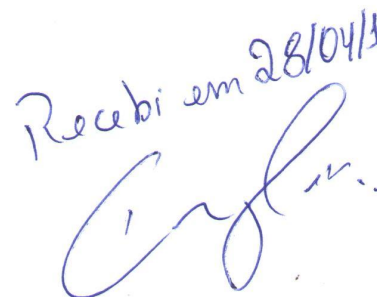 Recebi em 28/04/1